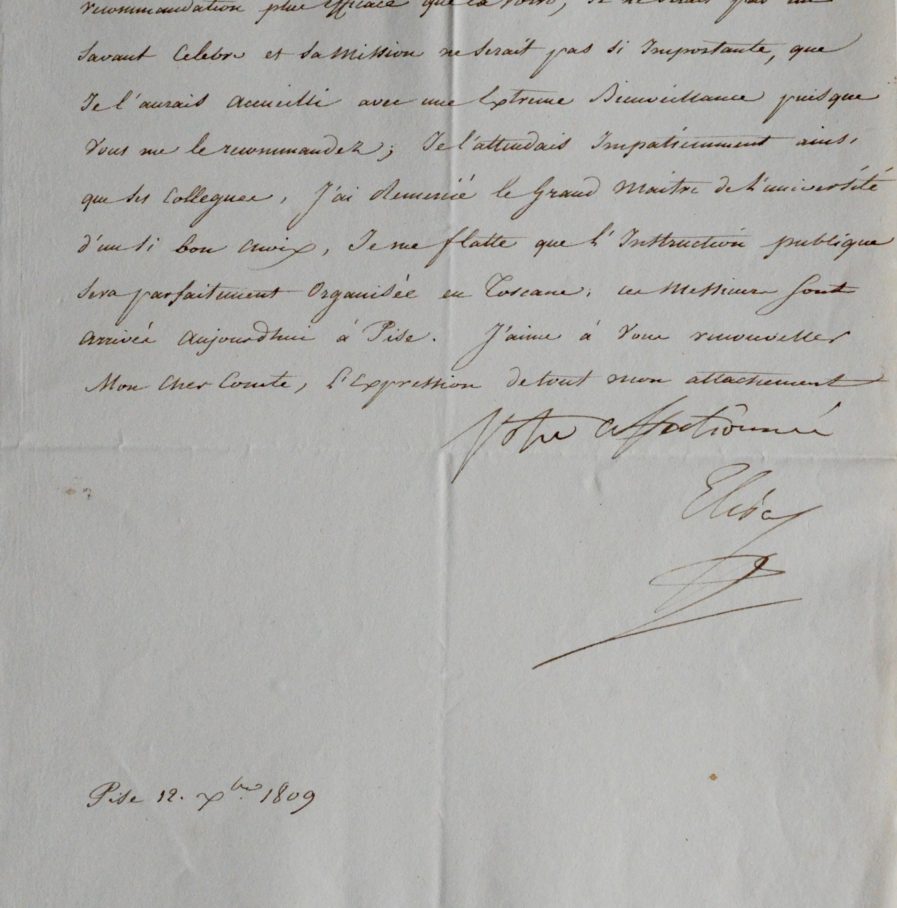 recommandation plus efficace que la votre, Je ne serais pas un
Savant Celebre et sa Mission ne serait pas si Importante, que
Je l'aurais accueilli avec une Extreme Bienveillance puisque
Vous me le recommandez; Je l'attendais Impatiemment ainsi
que ses Collegues, J'ai Remercié le Grand Maitre de l'université
d'un si bon choix, Je me flatte que l'Instruction publique
sera parfaitement Organisée en Toscane; ces Messieurs sont
arrivés aujourd'hui à Pise. J'aime à Vous renouveller
Mon Cher Comte, l'Expression de tout mon attachement
Votre affectionnée
Elisa
Pise 12. Xbre 1809